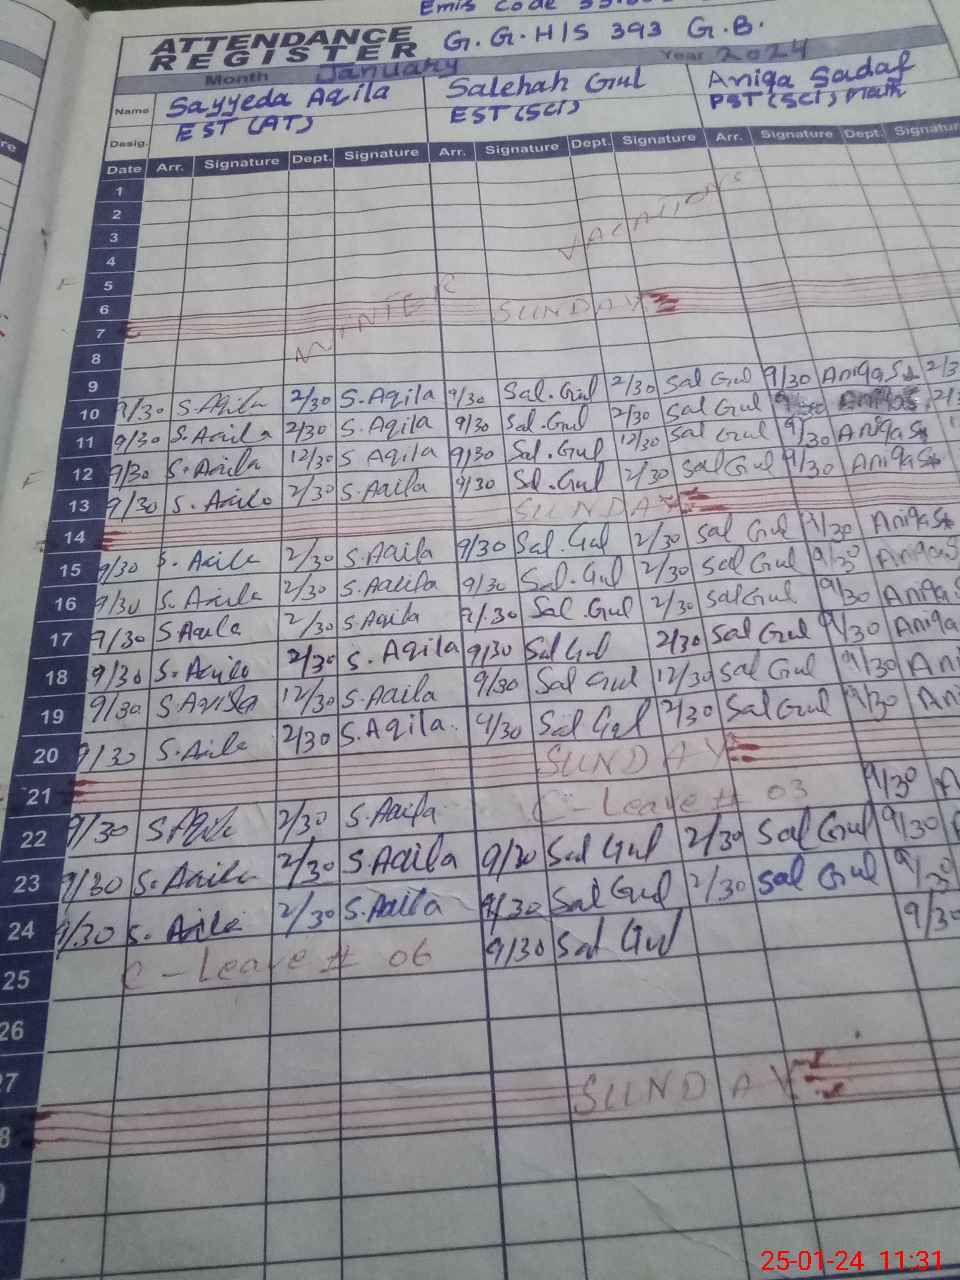 Emis Code
ATTENDANCE REGISTER G.G.H/S 393 G.B.
Month January Year 2024
Name Sayyeda Aqila Salehah Gul Aniqa Sadaf
Desig. EST (AT) EST (SCI) PST (SCI) Math
Date Arr. Signature Dept. Signature Arr. Signature Dept. Signature Arr. Signature Dept. Signatur
1
2 VACATIONS
3
4
5
6 WINTER SUNDAY
7
8
9 9/30 S.Aqila 2/30 S.Aqila 9/30 Sal.Gul 2/30 Sal Gul 9/30 Aniqa S 2/3
10 9/30 S.Aqila 2/30 S.Aqila 9/30 Sal.Gul 2/30 Sal Gul Aniqa S
11 9/30 S.Aqila 12/30 S Aqila 9/30 Sal.Gul 12/30 Sal Gul 9/30 Aniqa S
12 9/30 S.Aqila 2/30 S.Aqila 9/30 Sal.Gul 2/30 Sal Gul 9/30 Aniqa S
13 SUNDAY
14 9/30 S. Aqila 2/30 S.Aqila 9/30 Sal.Gul 2/30 Sal Gul 9/30 Aniqa S
15 9/30 S. Aqila 2/30 S.Aqila 9/30 Sal.Gul 2/30 Sal Gul 9/30 Aniqa S
16 9/30 S Aqila 2/30 S.Aqila 9/.30 Sal.Gul 2/30 Sal Gul 9/30 Aniqa
17 9/30 S. Aqila 2/30 S. Aqila 9/30 Sal Gul 2/30 Sal Gul 9/30 Aniqa
18 9/30 S Aqila 12/30 S.Aqila 9/30 Sal Gul 12/30 Sal Gul 9/30 Ani
19 9/30 S.Aqila 2/30 S.Aqila. 9/30 Sal Gul 2/30 Sal Gul 9/30 Ani
20 SUNDAY
21 9/30 S Aqila 2/30 S.Aqila C-Leave # 03 9/30 A
22 9/30 S. Aqila 2/30 S.Aqila 9/30 Sal Gul 2/30 Sal Gul 9/30
23 9/30 S. Aqila 2/30 S.Aqila 9/30 Sal Gul 2/30 Sal Gul 9/30
24 C-Leave # 06 9/30 Sal Gul 9/30
25
26
7 SUNDAY
8
25-01-24 11:31